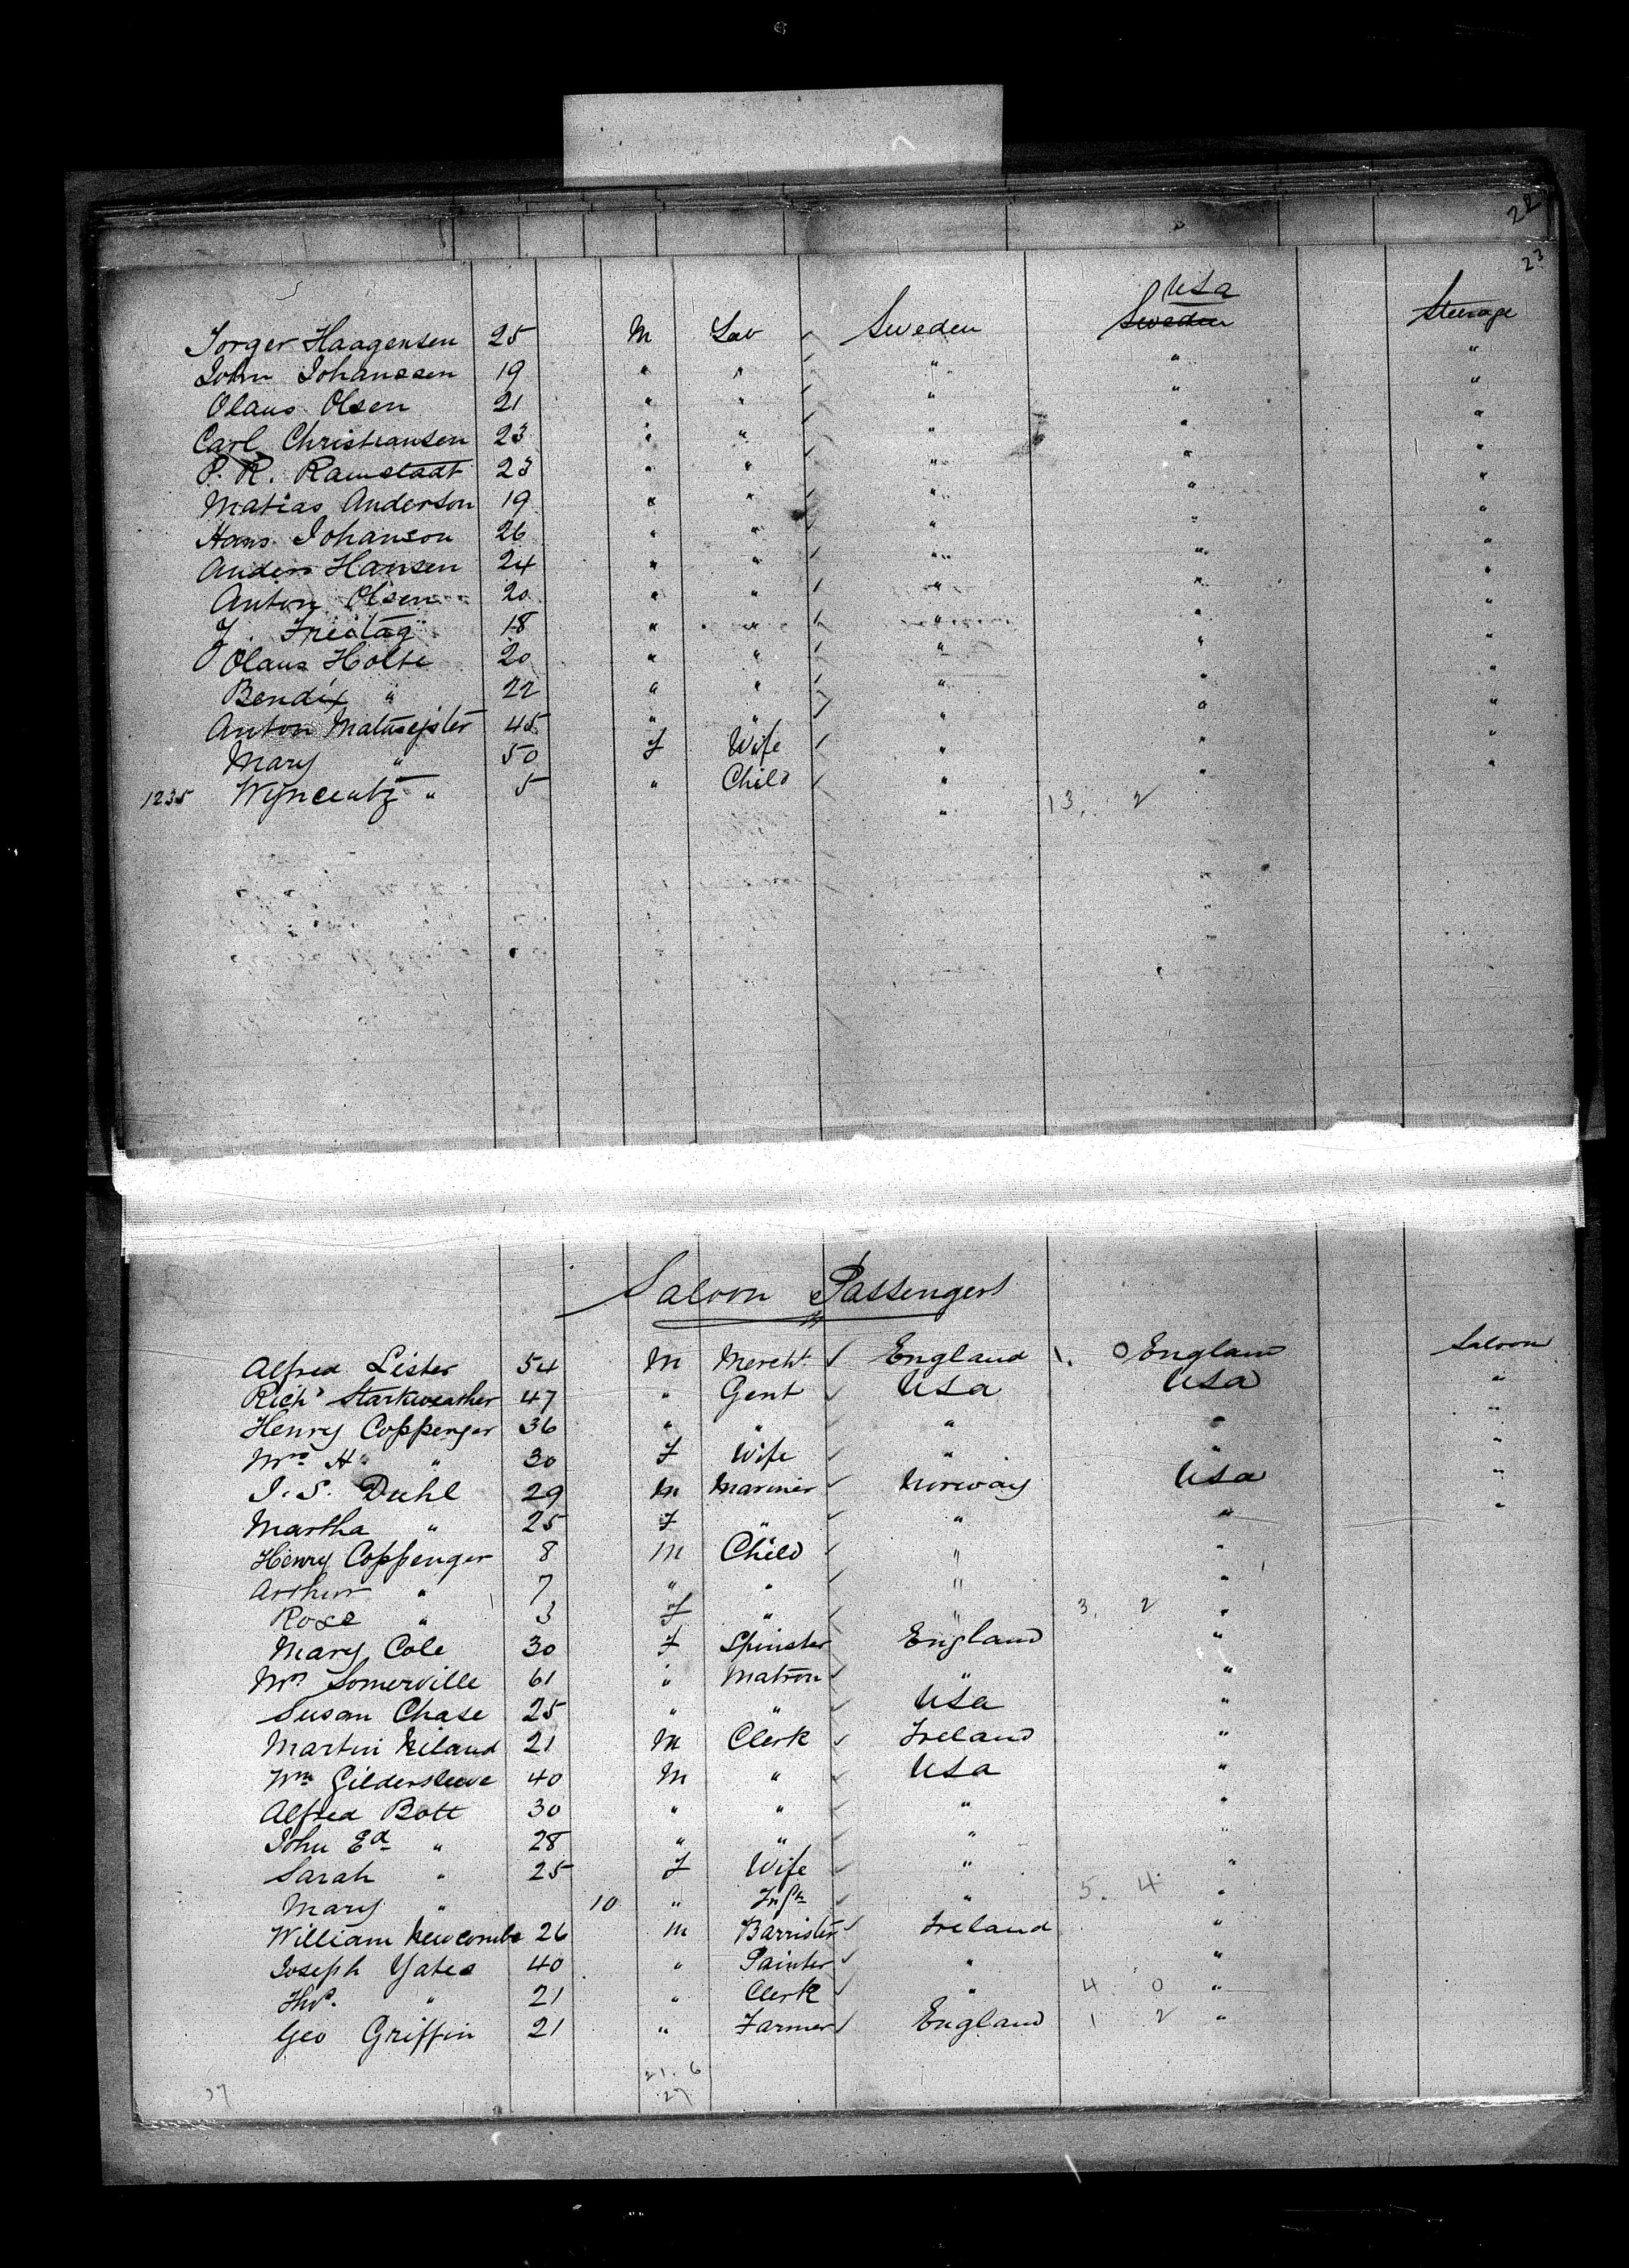 22
23
USA
Jorger Haagensen 25 M Lab Sweden Sweden Steerage
John Johanssen 19 " " " " "
Olaus Olsen 21 " " " " "
Carl Christiansen 23 " " " " "
P. R. Ramstadt 23 " " " " "
Matias Anderson 19 " " " " "
Hans Johanson 26 " " " " "
Anders Hansen 24 " " " " "
Anton Olsen 20 " " " " "
J. Freitag 18 " " " " "
Olaus Holte 20 " " " " "
Bendix " 22 " " " " "
Anton 45 " " " " "
Mary " 50 F Wife " " "
1235 Wyncentz " 5 " Child " " "
13. 2
Saloon Passengers
Alfred Lister 54 M Mercht England 1. 0 England Saloon
Richd Starkweather 47 " Gent USA USA "
Henry Coppenger 36 " " " " "
Mrs H. " 30 F Wife " " "
J. S. Duhl 29 M Mariner Norway USA "
Martha " 25 F " " " "
Henry Coppenger 8 M Child " "
Arthur " 7 " " " "
Rose " 3 F " " 3. 2 "
Mary Cole 30 F Spinster England "
Mrs Somerville 61 " Matron " "
Susan Chase 25 " " USA "
Martin Niland 21 M Clerk Ireland "
Wm Gildersleeve 40 M " USA "
Alfred Bott 30 " " " "
John Ed " 28 " " " "
Sarah " 25 F Wife " "
Mary " 10 " Infn " 5. 4. "
William Newcombe 26 M Barrister Ireland "
Joseph Yates 40 " Painter " "
Thos. " 21 " Clerk " 4 0 "
Geo Griffin 21 " Farmer England 1 2 "
21. 6
27